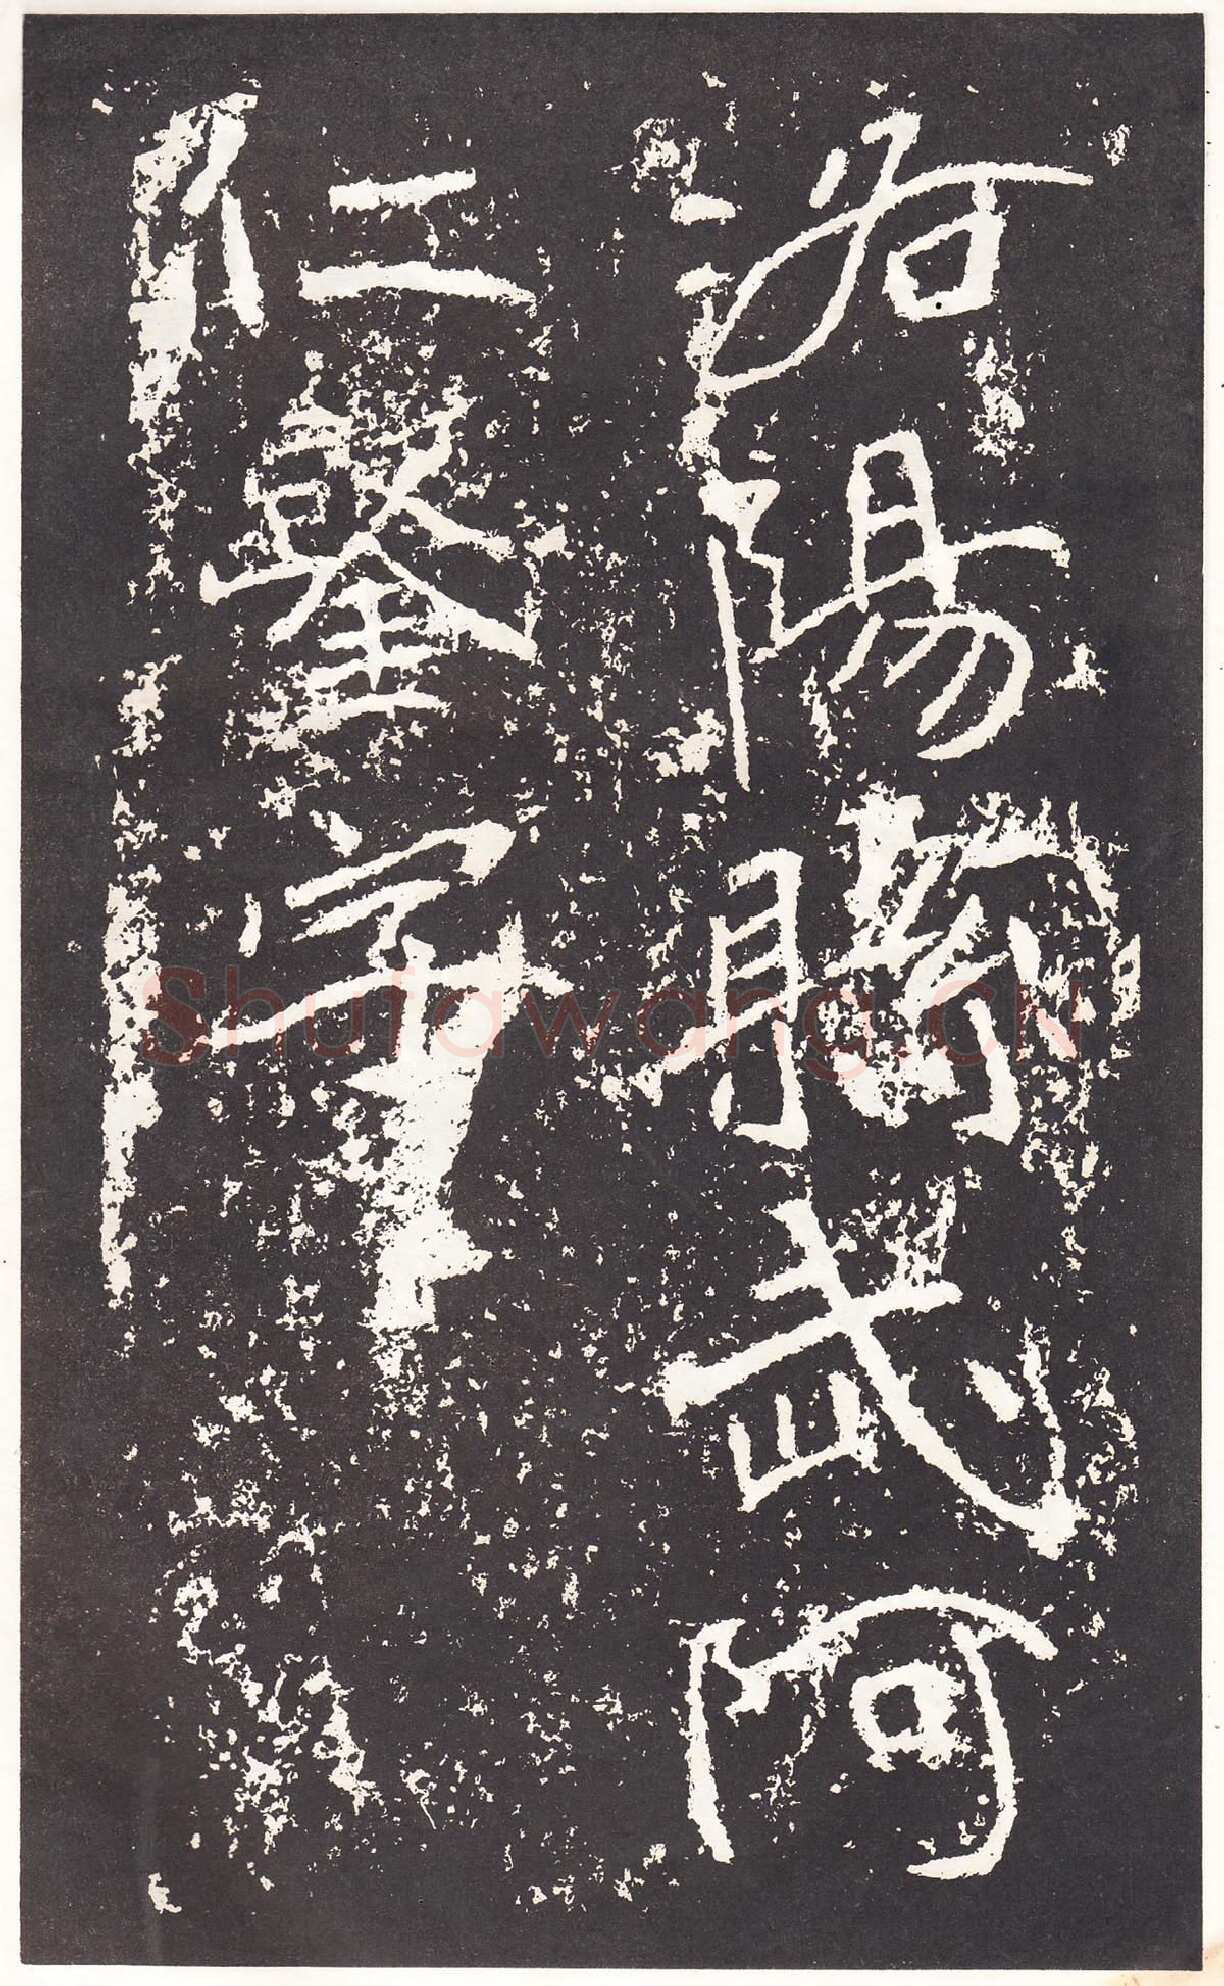 洛陽縣武阿
仁鑿字
Shufawang.CN